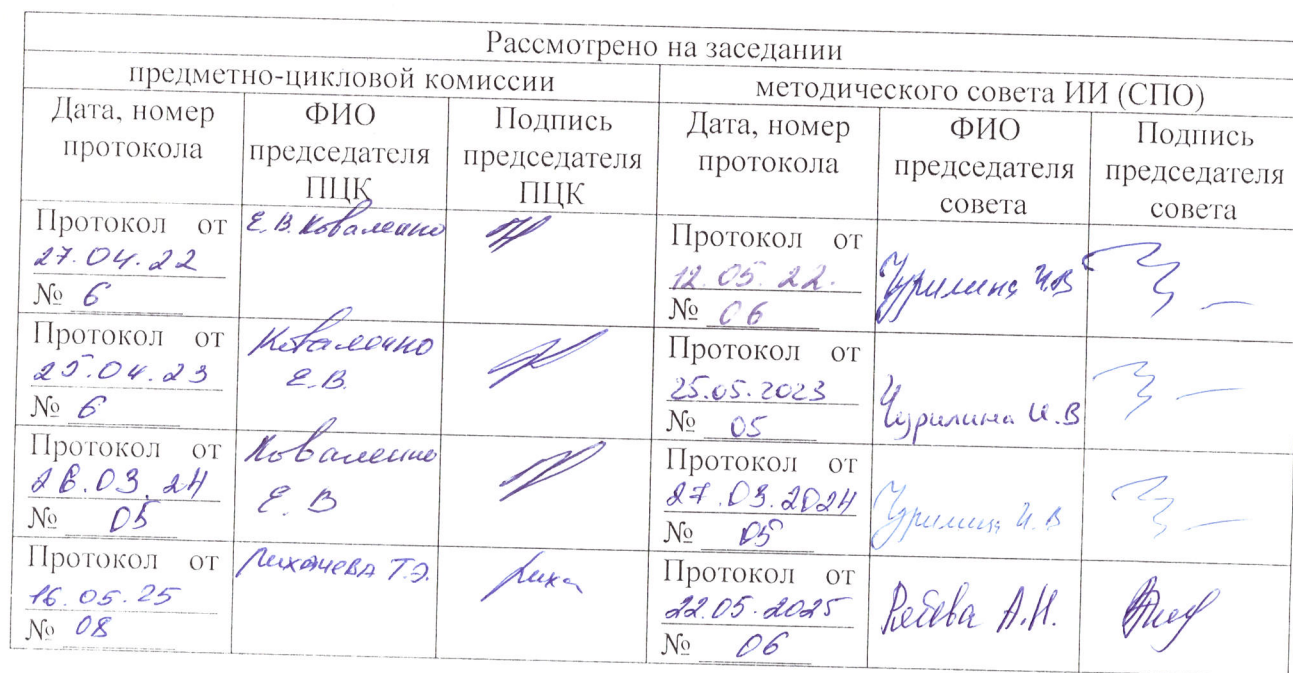 Рассмотрено на заседании
предметно-цикловой комиссии
методического совета ИИ (СПО)
Дата, номер протокола
ФИО председателя ПЦК
Подпись председателя ПЦК
Дата, номер протокола
ФИО председателя совета
Подпись председателя совета
Протокол от
27.04.22
№ 6
Е.В. Коваленко
Протокол от
12.05.22.
№ 06
Чурилина И.В
Протокол от
25.04.23
№ 6
Коваленко
Е.В.
Протокол от
25.05.2023
№ 05
Чурилина И.В
Протокол от
26.03.24
№ 05
Коваленко
Е.В
Протокол от
27.03.2024
№ 05
Чурилина И.В
Протокол от
16.05.25
№ 08
Лихачева Т.Э.
Лиха
Протокол от
22.05.2025
№ 06
А.Н.